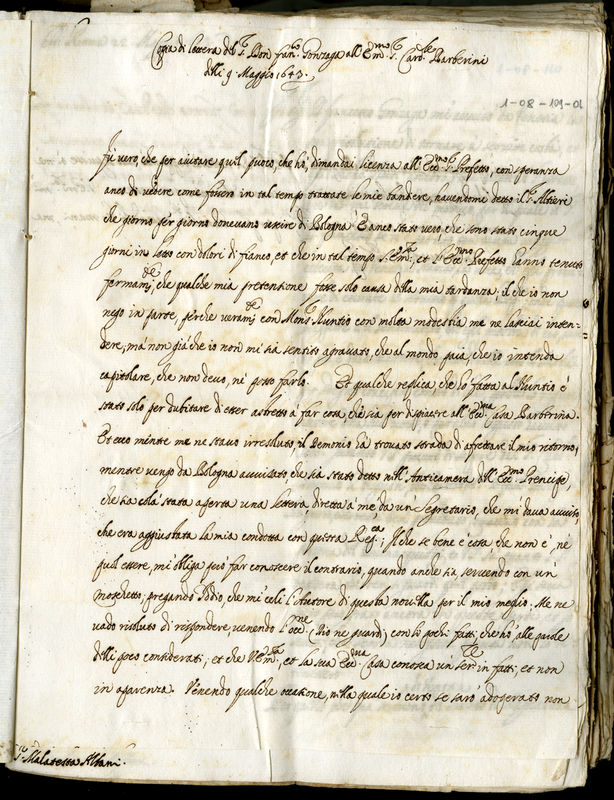 Copia di lettera del S.r Don fan.o Gonzaga all Em.mo S.r Card.le Barberini
delli 9. Maggio 1643.
1-08-109-01
È vero, che per aiutare quel puoco, che hò, dimandai licenza all' Ecc.mo S.r Prefetto, con speranza
anco di vedere come fossero in tal tempo trattate le mie bandere, havendome detto il S.r Altieri
che giorno per giorno douevano uscire di Bologna. È anco stato vero, che sono stato cinque
giorni in letto con dolori di fianco, et che in tal tempo S. Em.za, et l'Ecc.mo Prefetto hanno tenuto
fermam.te, che qualche mia pretensione fosse solo causa della mia tardanza; il che io non
nego in parte, perche veram.te con Mons.r Nuntio con molta modestia me ne lasciai inten=
dere; mà non già che io non mi sia sentito agravato, che al mondo paia, che io intenda
capitolare, che non devo, nè posso farlo. Et qualche replica, che hò fatta al Nuntio è
stato solo per dubitare di esser astretto à far cosa, che sia per dispiacere all' Ecc.ma Casa Barberina.
Et ecco mentre me ne stavo irresoluto, il Demonio hà trovato strada di affrettare il mio ritorno,
mentre vengo da Bologna avvisato, che sia stato detto nell'Anticamera dell' Ecc.mo Prencipe,
che sia colà stata aperta una lettera diretta à me da un Segretario, che mi dava avviso,
che era aggiustata la mia condotta con questa Rep.ca; Il che se bene è cosa, che non è, nè
può essere, mi obliga però far conoscere il contrario, quando anche sia, servendo con un
Moschetto; pregando Iddio che mi celi l'Autore di questa novella per il mio meglio. Me ne
vado risoluto di rispondere, venendo l'occ.ne (Dio ne guardi) con li pochi fatti, che hò alle parole
delli poco considerati; et che V. Em.za, et la sua Ecc.ma Casa conosca un' ser.re in fatti, et non
in aparenza. Venendo qualche occasione, nella quale io certo se sarò adoperato non
S.r Malatesta Albani.